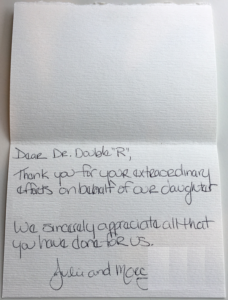 Dear Dr. Double "R",
Thank you for your extraordinary
efforts on behalf of our daughter
We sincerely appreciate all that
you have done for us.
Julie and Marc